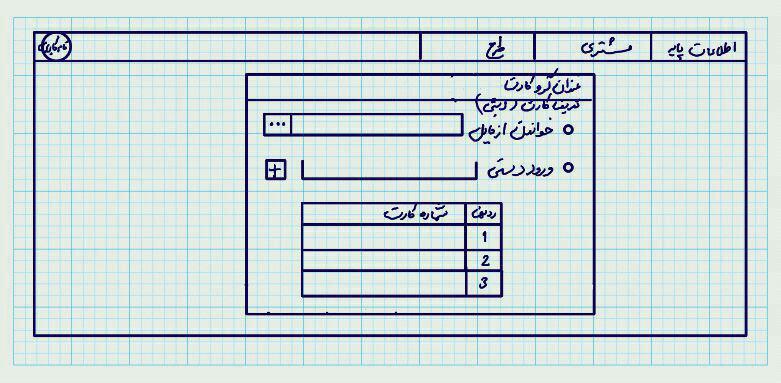 اطلاعات پایه
مشتری
طرح
نام کاربری
عنوان گروه کارت
تعریف کارت (دستی)
خواندن از فایل
...
ورود دستی
+
ردیف شماره کارت
1
2
3